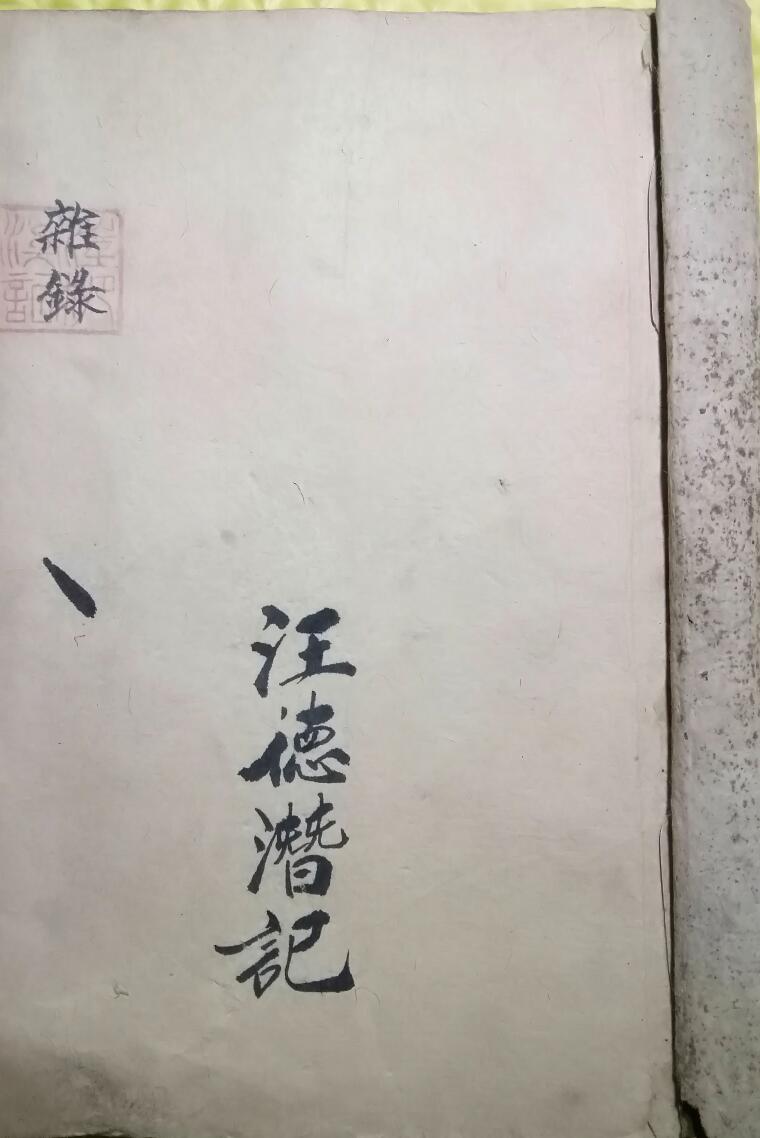 雜錄
汪德潛記